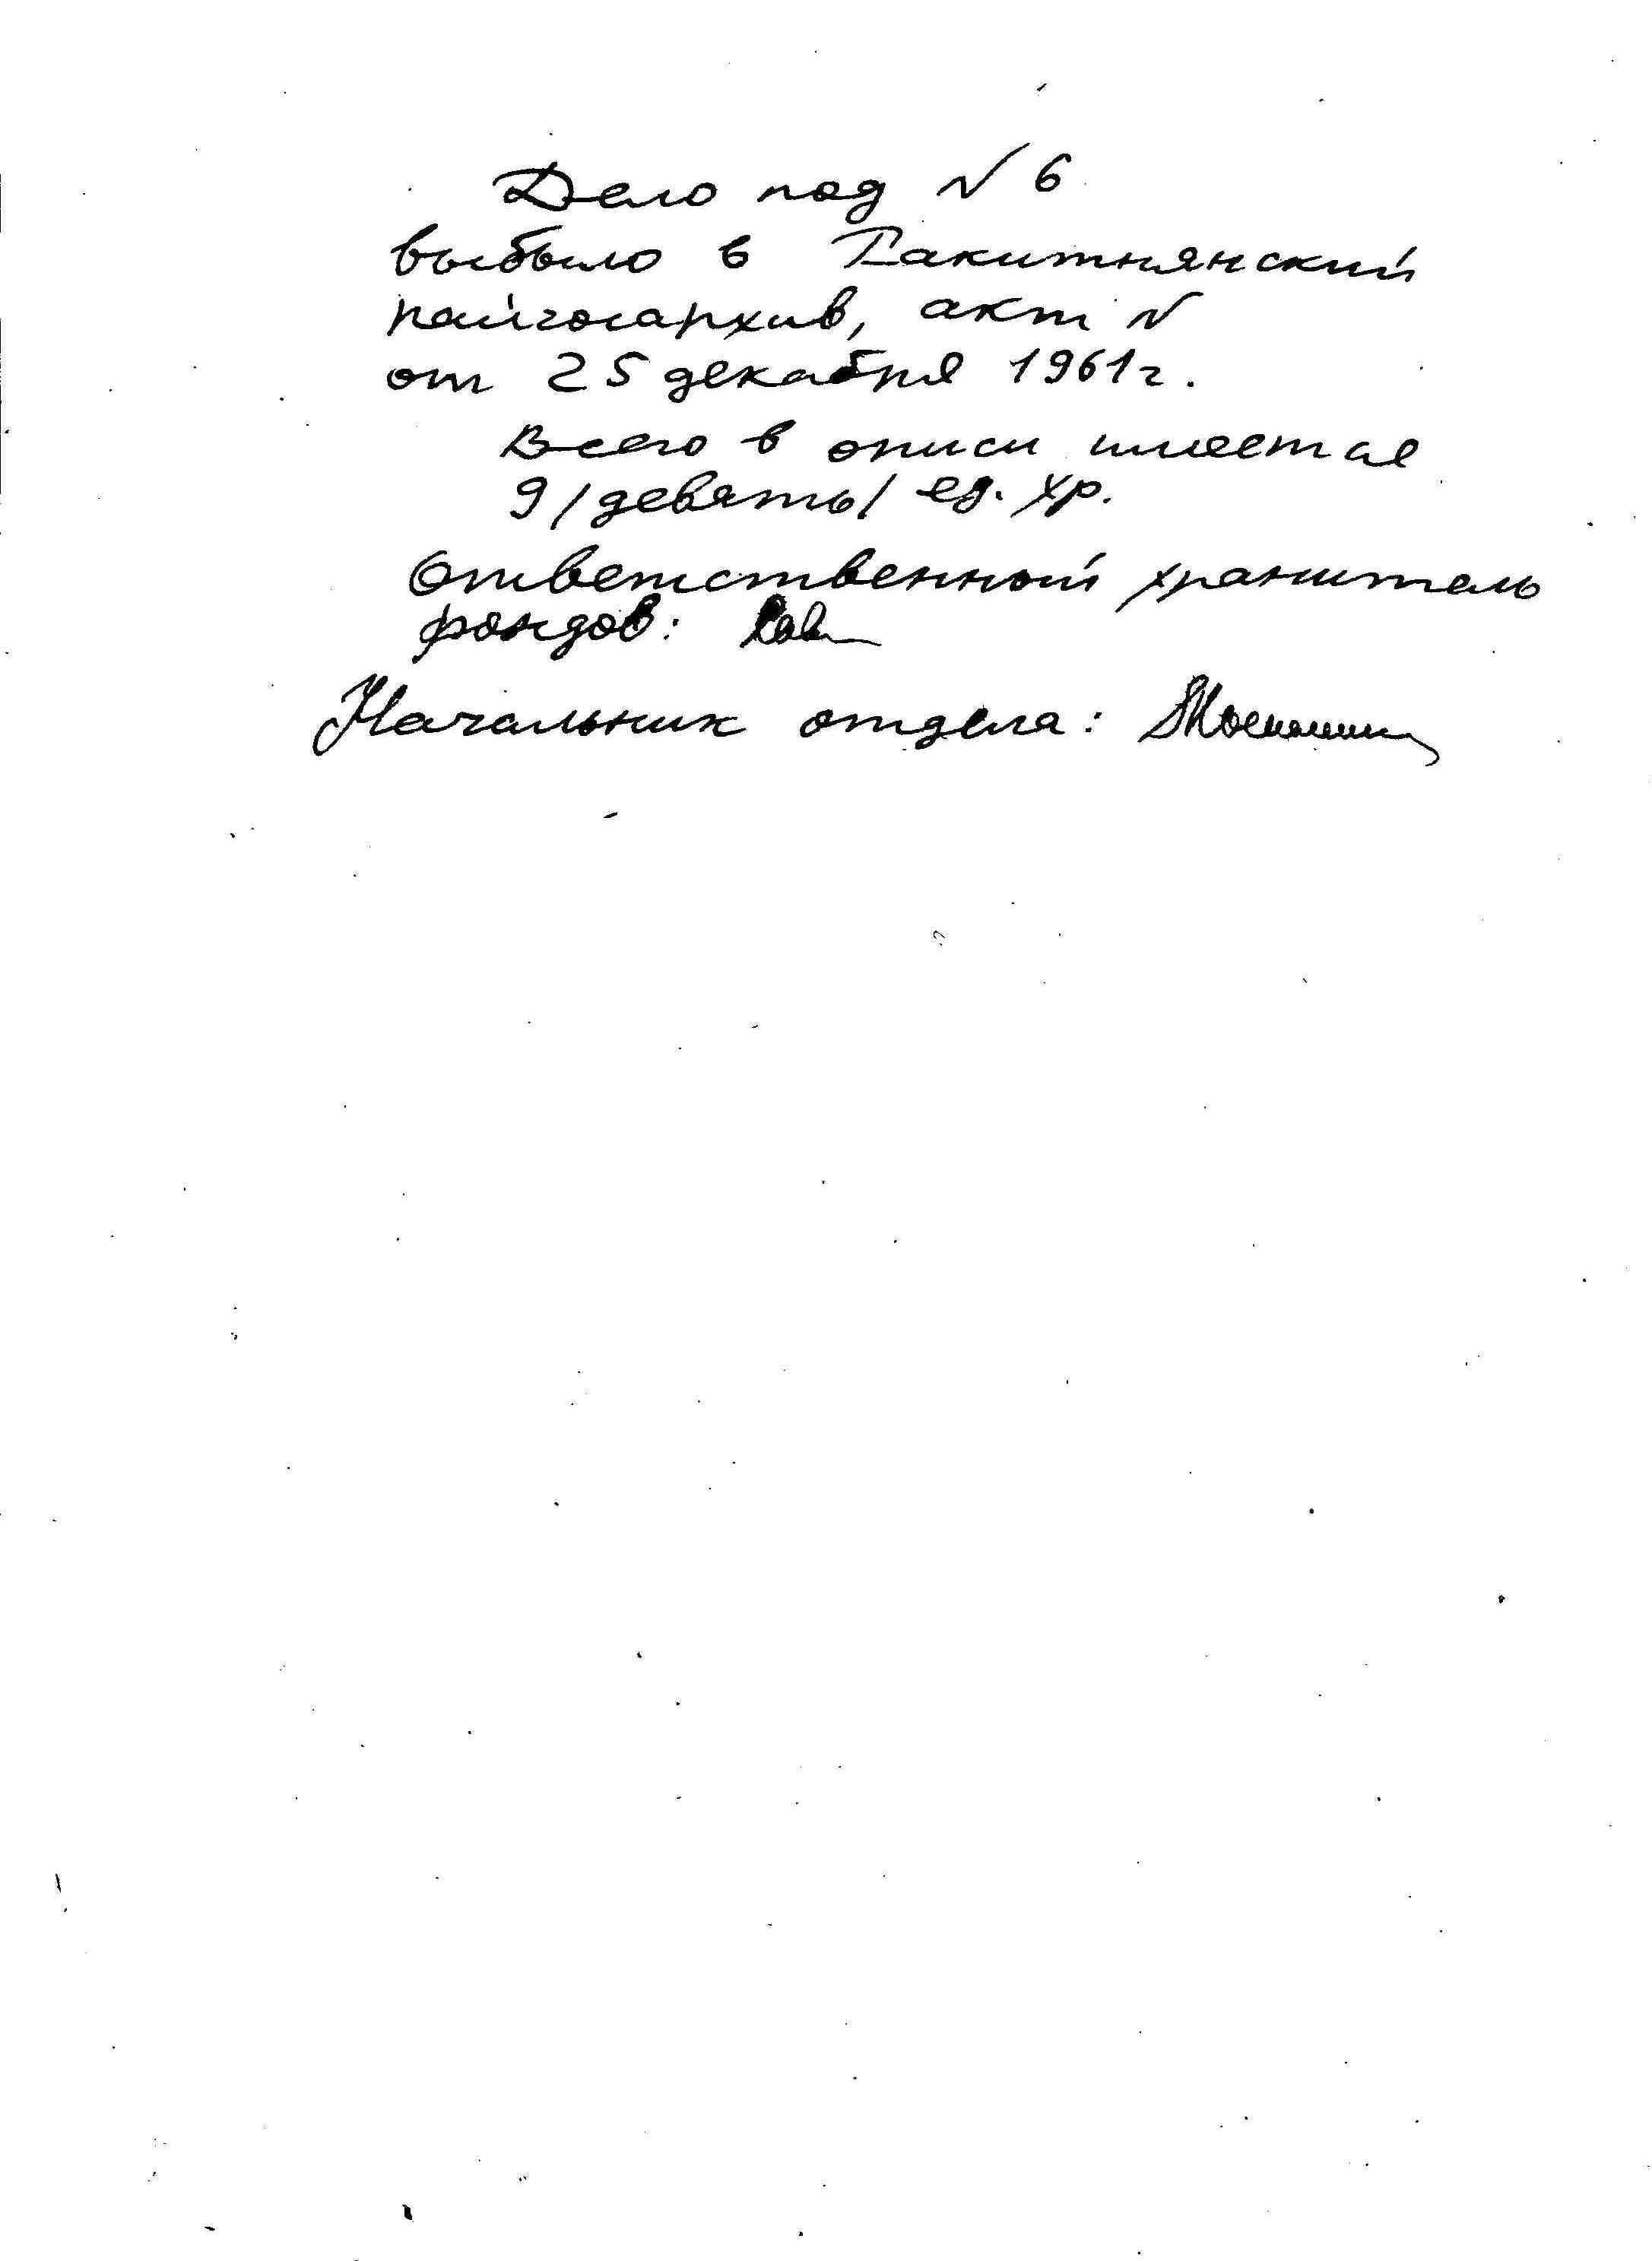 Дело под № 6
выбыло в Ракитнянский
райгосархив, акт №
от 25 декабря 1961 г.
Всего в описи имеется
9 /девять/ ед. хр.
Ответственный хранитель
фондов:
Начальник отдела: